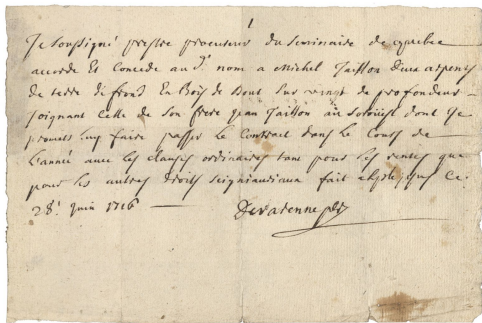 1
Je soussigné prestre procureur du seminaire de quebec
accorde et concede au d. nom a Michel deux arpents
de terre de front en bois de bout sur vingt de profondeur
joignant celle de son frere jean au dont je
promets luy faire passer le contract dans le cours de
l'année avec les clauses ordinaires tant pour les rentes que
pour les autres droits seigneuriaux fait ce
28e juin 1716
Devarenne ptr